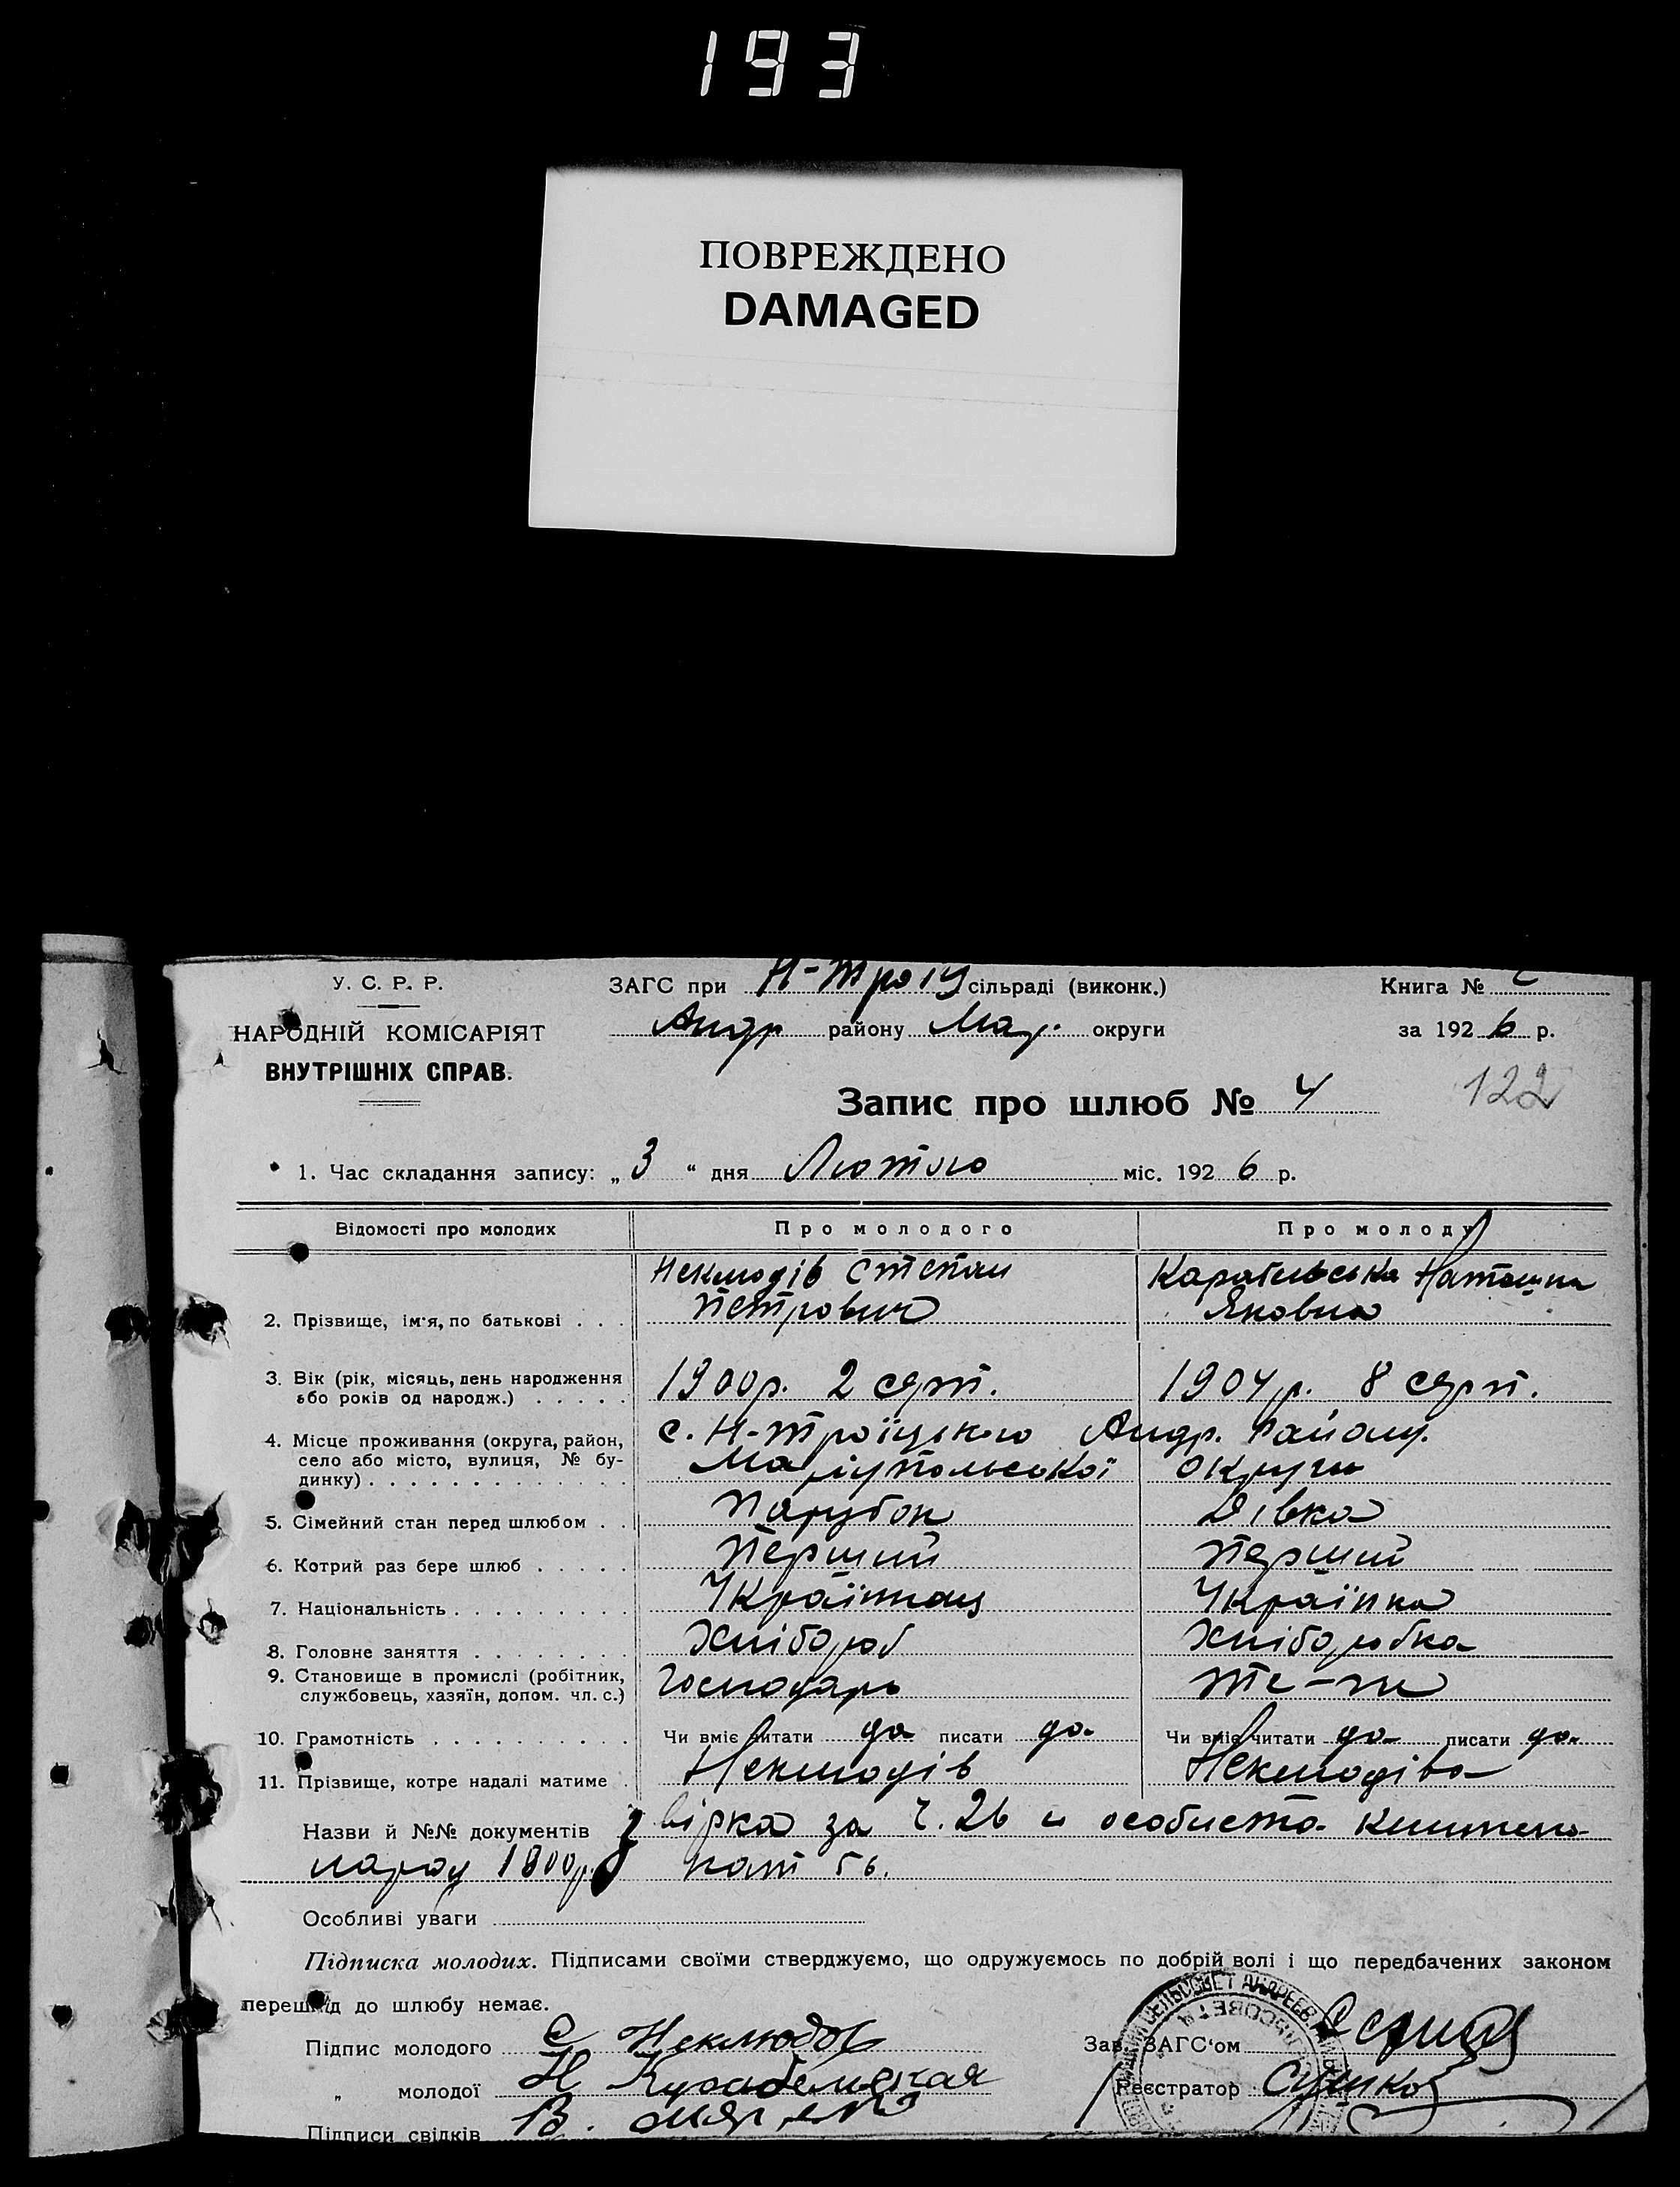 193
ПОВРЕЖДЕНО
DAMAGED
У. С. Р. Р.
НАРОДНІЙ КОМІСАРІЯТ
ВНУТРІШНІХ СПРАВ.
ЗАГС при Н-Троїц сільраді (виконк.)
Андр району Мар. округи
Книга №
за 1926 р.
Запис про шлюб № 4
122
1. Час складання запису: „3“ дня Лютого міс. 1926 р.
Відомості про молодих Про молодого Про молоду
2. Прізвище, ім'я, по батькові . . . Неклюдів Степан Петрович Яковна
3. Вік (рік, місяць, день народження або років од народж.) . . . . . 1900р. 2 серп. 1904р. 8 серп.
4. Місце проживання (округа, район, село або місто, вулиця, № будинку) . . . с. Н-Троїцького Андр. Району
Маріупольської округи
5. Сімейний стан перед шлюбом . . Парубок Дівка
6. Котрий раз бере шлюб . . . . . Перший Перший
7. Національність . . . . . . . . . Українець Українка
8. Головне заняття . . . . . . . . Хлібороб Хліборобка
9. Становище в промислі (робітник, службовець, хазяїн, допом. чл. с.) Господарь те-ж
10. Грамотність . . . . . . . . . . Чи вміє читати да писати да Чи вміє читати да писати да
11. Прізвище, котре надалі матиме . Неклюдів Неклюдіва
Назви й №№ документів вірка за ч. 26 и особиста
народ 1900р.
Особливі уваги
Підписка молодих. Підписами своїми стверджуємо, що одружуємось по добрій волі і що передбачених законом
перешкід до шлюбу немає.
Підпис молодого С Неклюдов Зав. ЗАГС'ом
„ молодої Н Реєстратор
Підписи свідків В.